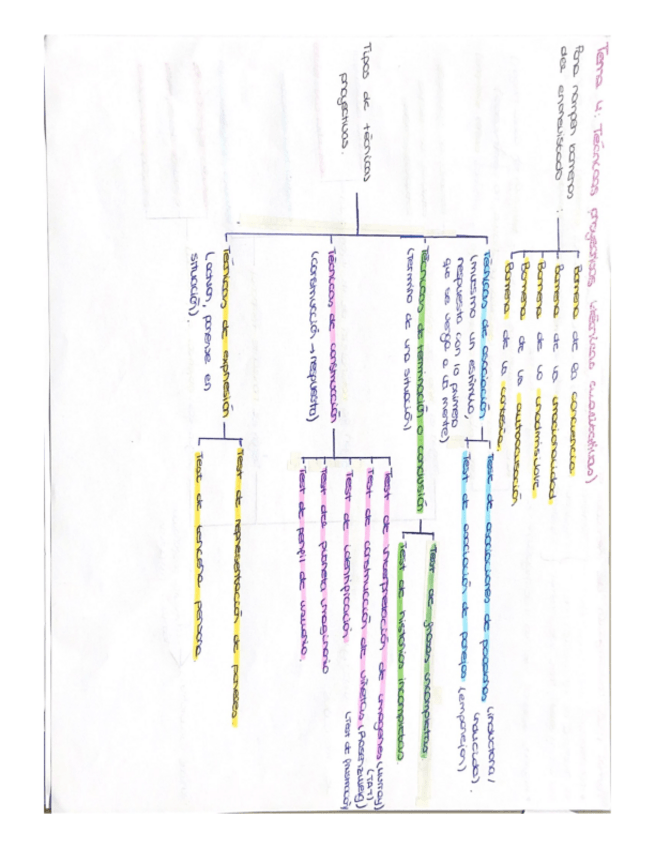 Tema 4: Técnicas proyectivas (técnicas cualitativas)
Para romper barreras
del entrevistado
Barrera de la conciencia
Barrera de la irracionalidad
Barrera de lo inadmisible
Barrera de la autoacusación
Barrera de la cortesía.
Tipos de técnicas
proyectivas.
Técnicas de asociación
(muestra un estímulo,
respuesta con lo primero
que se venga a la mente)
Test de asociaciones de palabras (inductora/
inducida).
Test de asociación de parejas (empareja)
Técnicas de terminación o conclusión
(termino de una situación)
Test de frases incompletas.
Test de historias incompletas.
Técnicas de construcción
(construcción → respuesta)
Test de interpretación de imágenes (Murray)
(TAT)
Test de construcción de viñetas (Rosenzweig)
Test de identificación
(Test de frustración)
Test del planeta imaginario
Test de perfil de usuario.
Técnicas de expresión
(actúan, ponerse en
situación).
Test de representación de papeles.
Test de tercera persona.